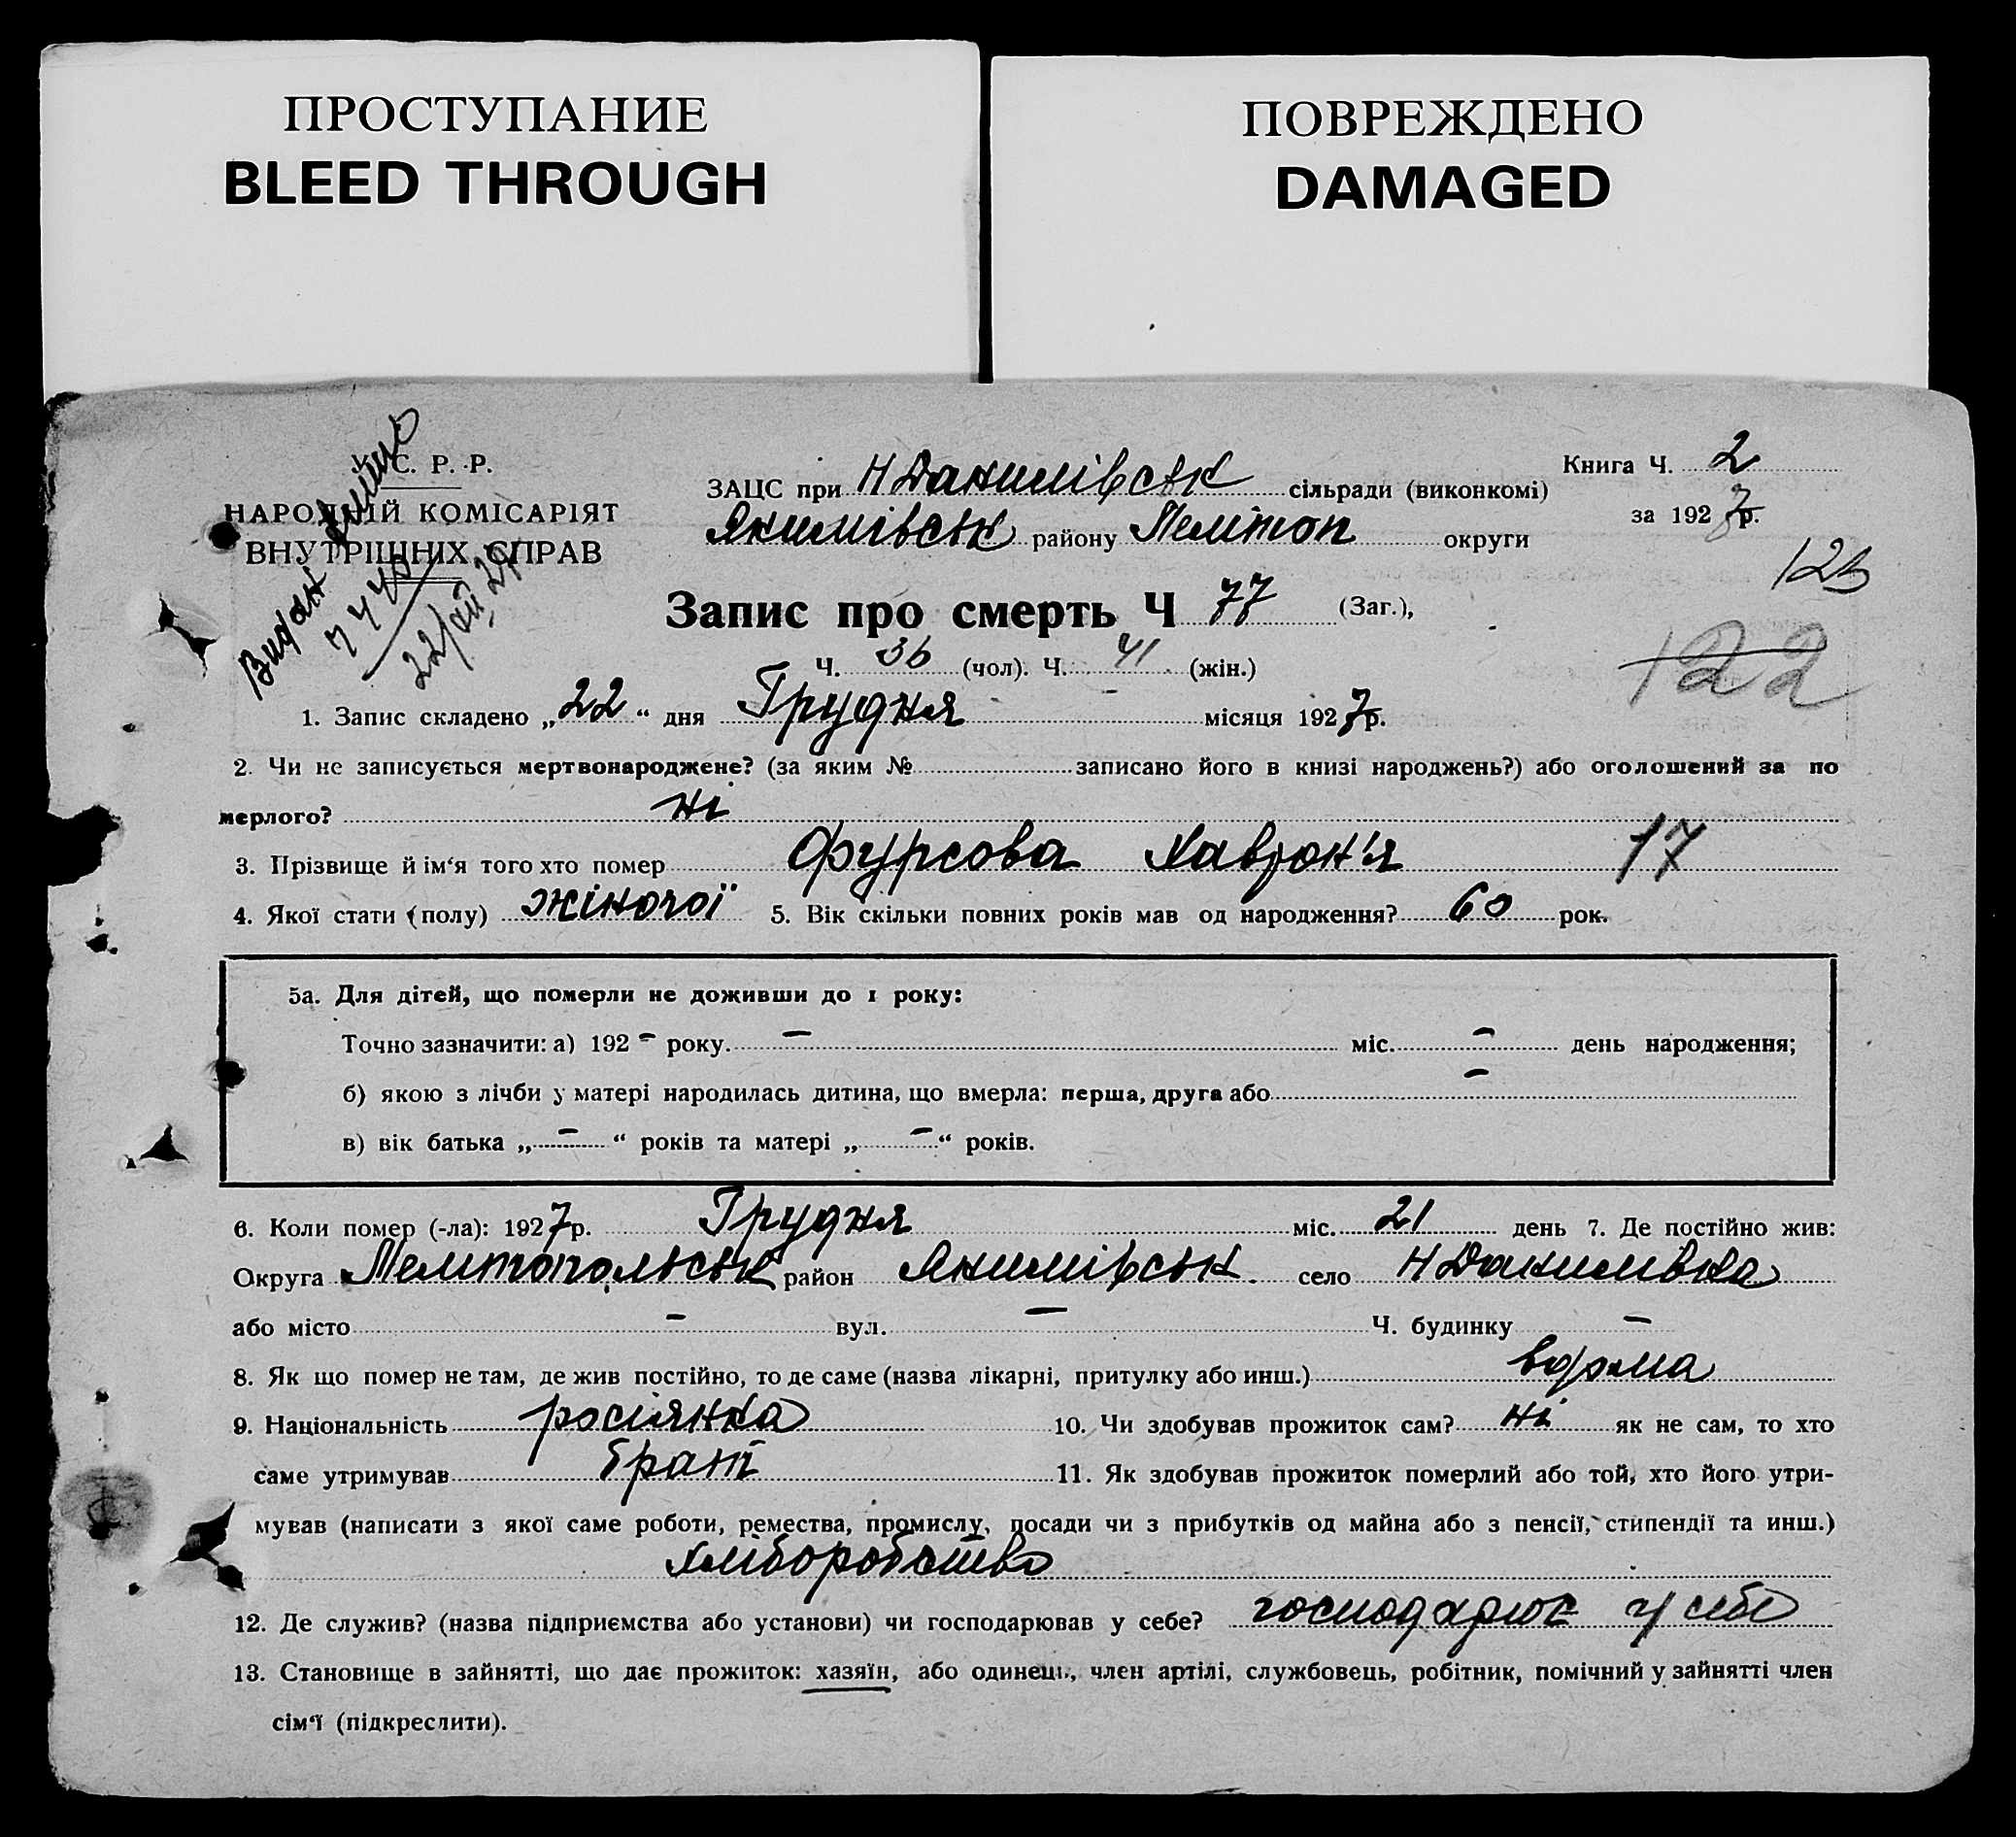 ПРОСТУПАНИЕ
BLEED THROUGH
ПОВРЕЖДЕНО
DAMAGED
У. С. Р. Р.
НАРОДНІЙ КОМІСАРІЯТ
ВНУТРІШНІХ СПРАВ
Видан
22/XII 27
ЗАЦС при Н Данилівськ сільради (виконкомі)
Якимівськ району Мелітоп округи
Книга Ч. 2
за 1927 р.
123
122
Запис про смерть Ч 77 (Заг.),
Ч. 36 (чол). Ч. 41 (жін.)
1. Запис складено „22“ дня Грудня місяця 1927р.
2. Чи не записується мертвонароджене? (за яким № записано його в книзі народжень?) або оголошений за по
мерлого? ні
3. Прізвище й ім‘я того хто помер Фурсова Хаврон'я 17
4. Якої стати (полу) жіночої 5. Вік скільки повних років мав од народження? 60 рок.
5а. Для дітей, що померли не доживши до 1 року:
Точно зазначити: а) 192 - року. - міс. - день народження;
б) якою з лічби у матері народилась дитина, що вмерла: перша, друга або -
в) вік батька „ - “ років та матері „ - “ років.
6. Коли помер (-ла): 1927р. Грудня міс. 21 день 7. Де постійно жив:
Округа Мелітопольськ район Якимівськ село Н Данилівка
або місто - вул. - Ч. будинку -
8. Як що помер не там, де жив постійно, то де саме (назва лікарні, притулку або инш.) вдома
9. Національність росіянка 10. Чи здобував прожиток сам? ні як не сам, то хто
саме утримував брат 11. Як здобував прожиток померлий або той, хто його утри-
мував (написати з якої саме роботи, ремества, промислу, посади чи з прибутків од майна або з пенсії, стипендії та инш.)
хліборобство
12. Де служив? (назва підприємства або установи) чи господарював у себе? господарює у себе
13. Становище в зайнятті, що дає прожиток: хазяїн, або одинець, член артілі, службовець, робітник, помічний у зайнятті член
сім‘ї (підкреслити).